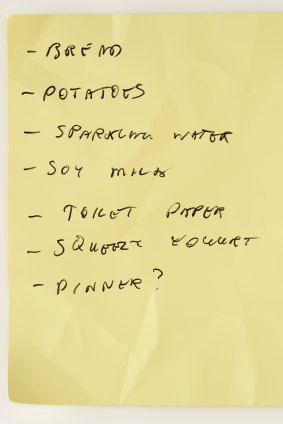 - BREAD
- POTATOES
- SPARKLING WATER
- SOY MILK
- TOILET PAPER
- SQUEEZY YOGURT
- DINNER?